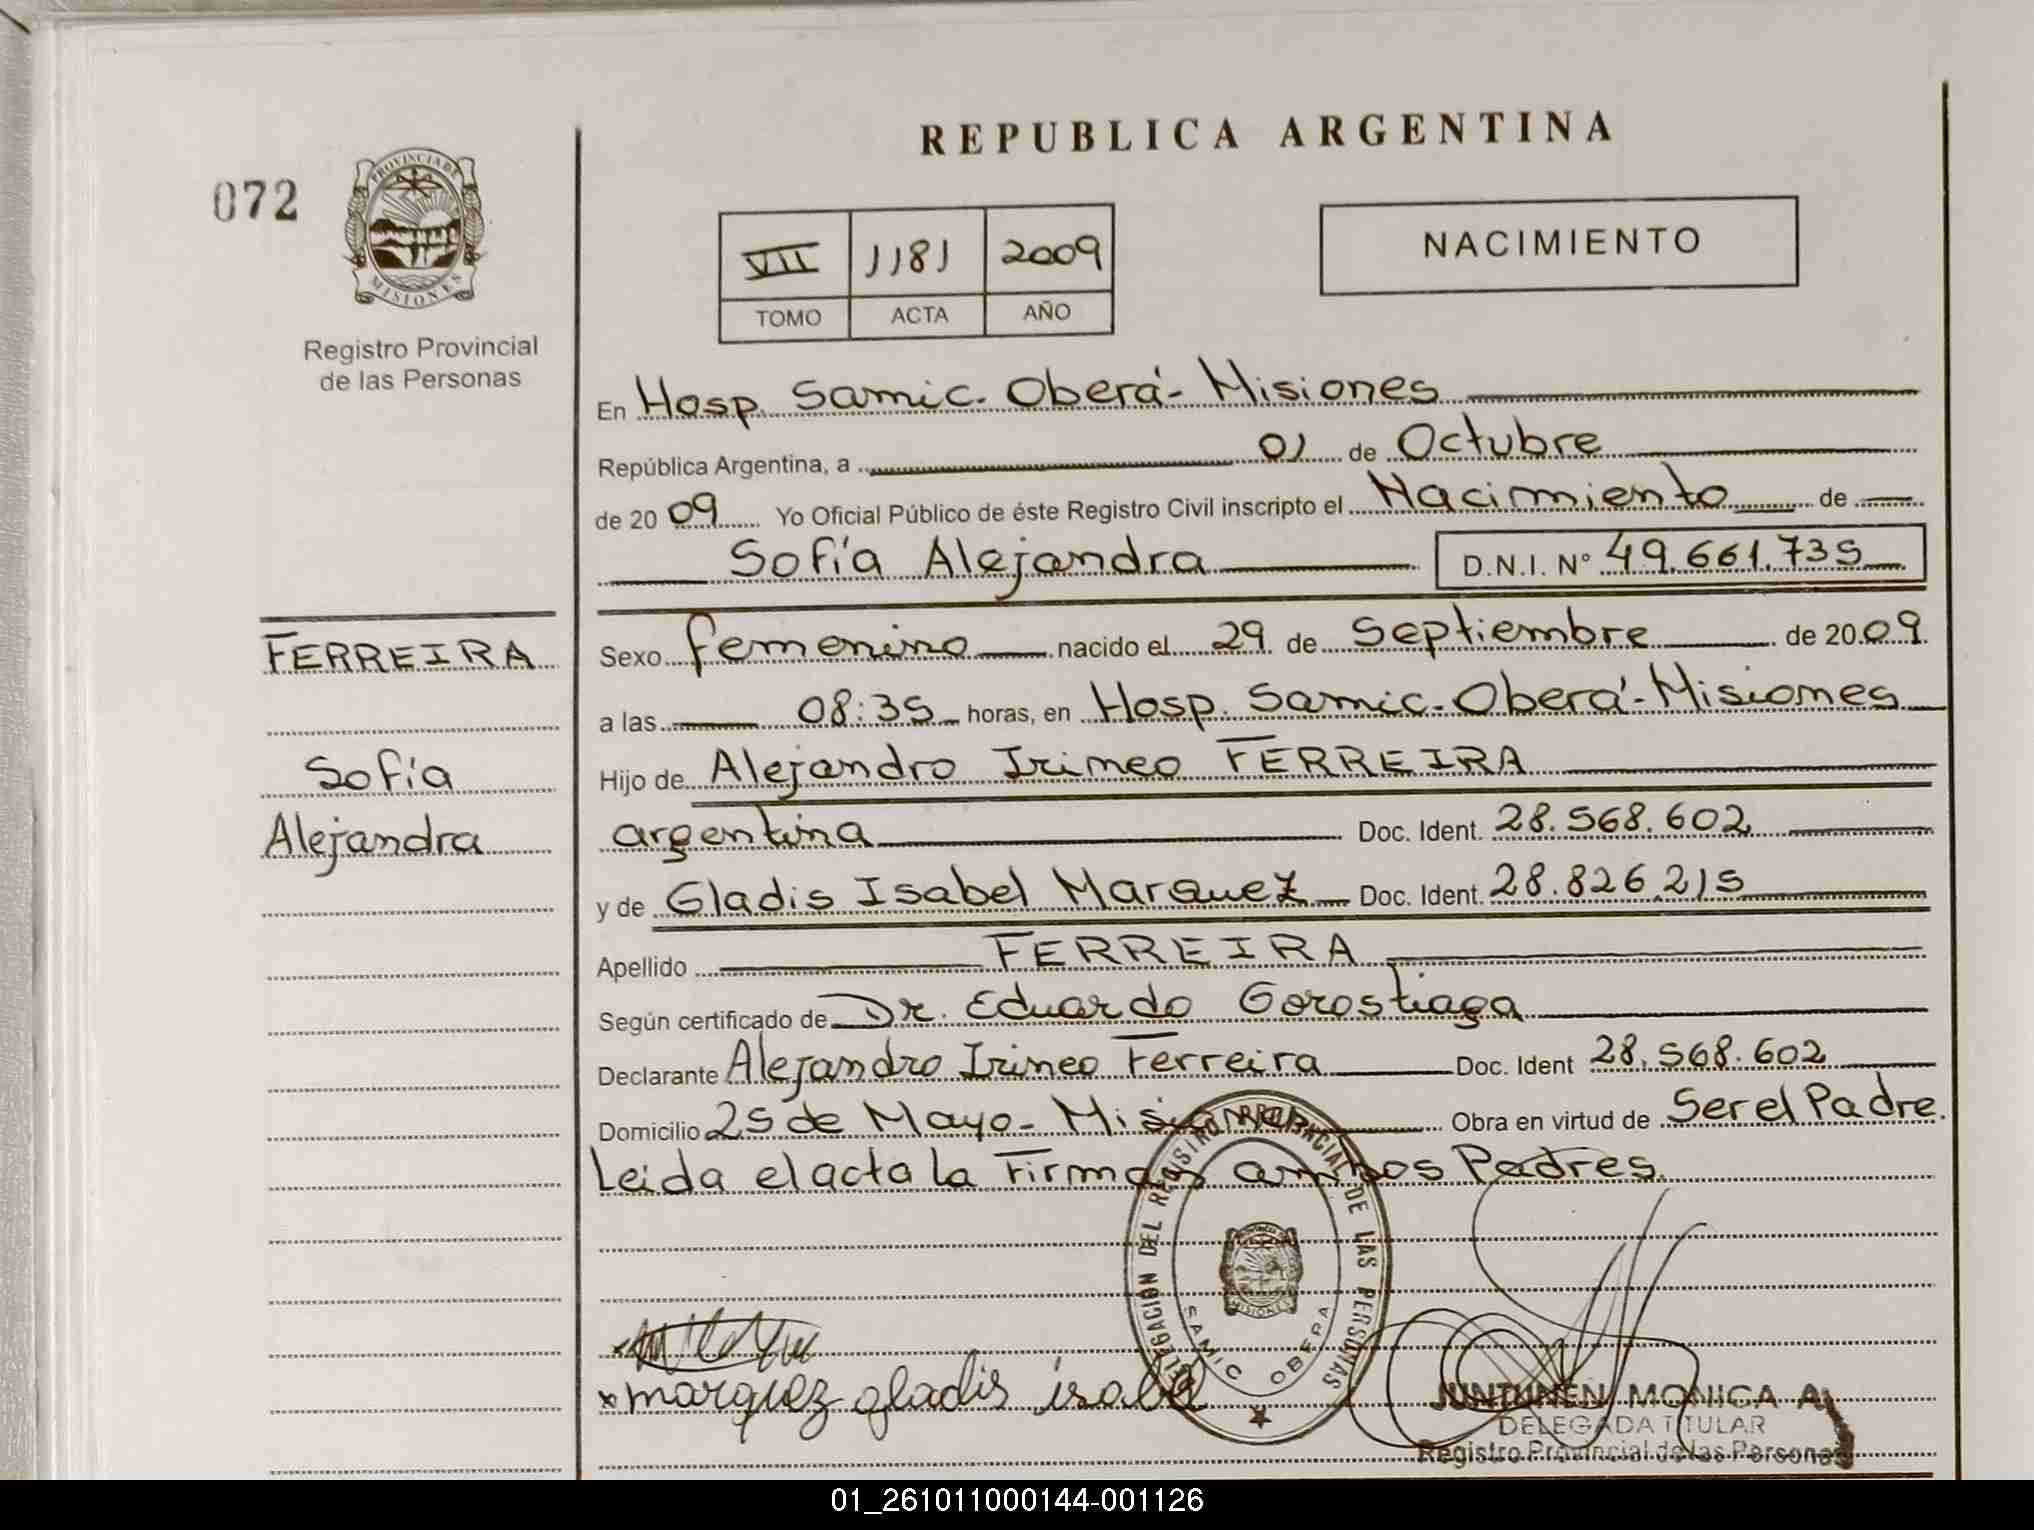 REPUBLICA ARGENTINA
072
PROVINCIA DE
MISIONES
Registro Provincial
de las Personas
VII 1181 2009
TOMO ACTA AÑO
NACIMIENTO
En Hosp. Samic. Oberá - Misiones
República Argentina, a 01 de Octubre
de 2009 Yo Oficial Público de éste Registro Civil inscripto el Nacimiento de
Sofía Alejandra D.N.I. N° 49.661.735
FERREIRA
Sofía
Alejandra
Sexo femenino nacido el 29 de Septiembre de 2009
a las 08:35 horas, en Hosp. Samic. Oberá - Misiones
Hijo de Alejandro Irineo FERREIRA
argentina Doc. Ident. 28.568.602
y de Gladis Isabel Marquez Doc. Ident. 28.826.215
Apellido FERREIRA
Según certificado de Dr. Eduardo Gorostiaga
Declarante Alejandro Irineo Ferreira Doc. Ident 28.568.602
Domicilio 25 de Mayo - Misiones Obra en virtud de Ser el Padre.
Leida el acta la Firman ambos Padres.
DELEGACION DEL REGISTRO PROVINCIAL DE LAS PERSONAS
MISIONES
SAMIC OBERA
marquez gladis isabel
JUNTUNEN MONICA A.
DELEGADA TITULAR
Registro Provincial de las Personas
01_261011000144-001126